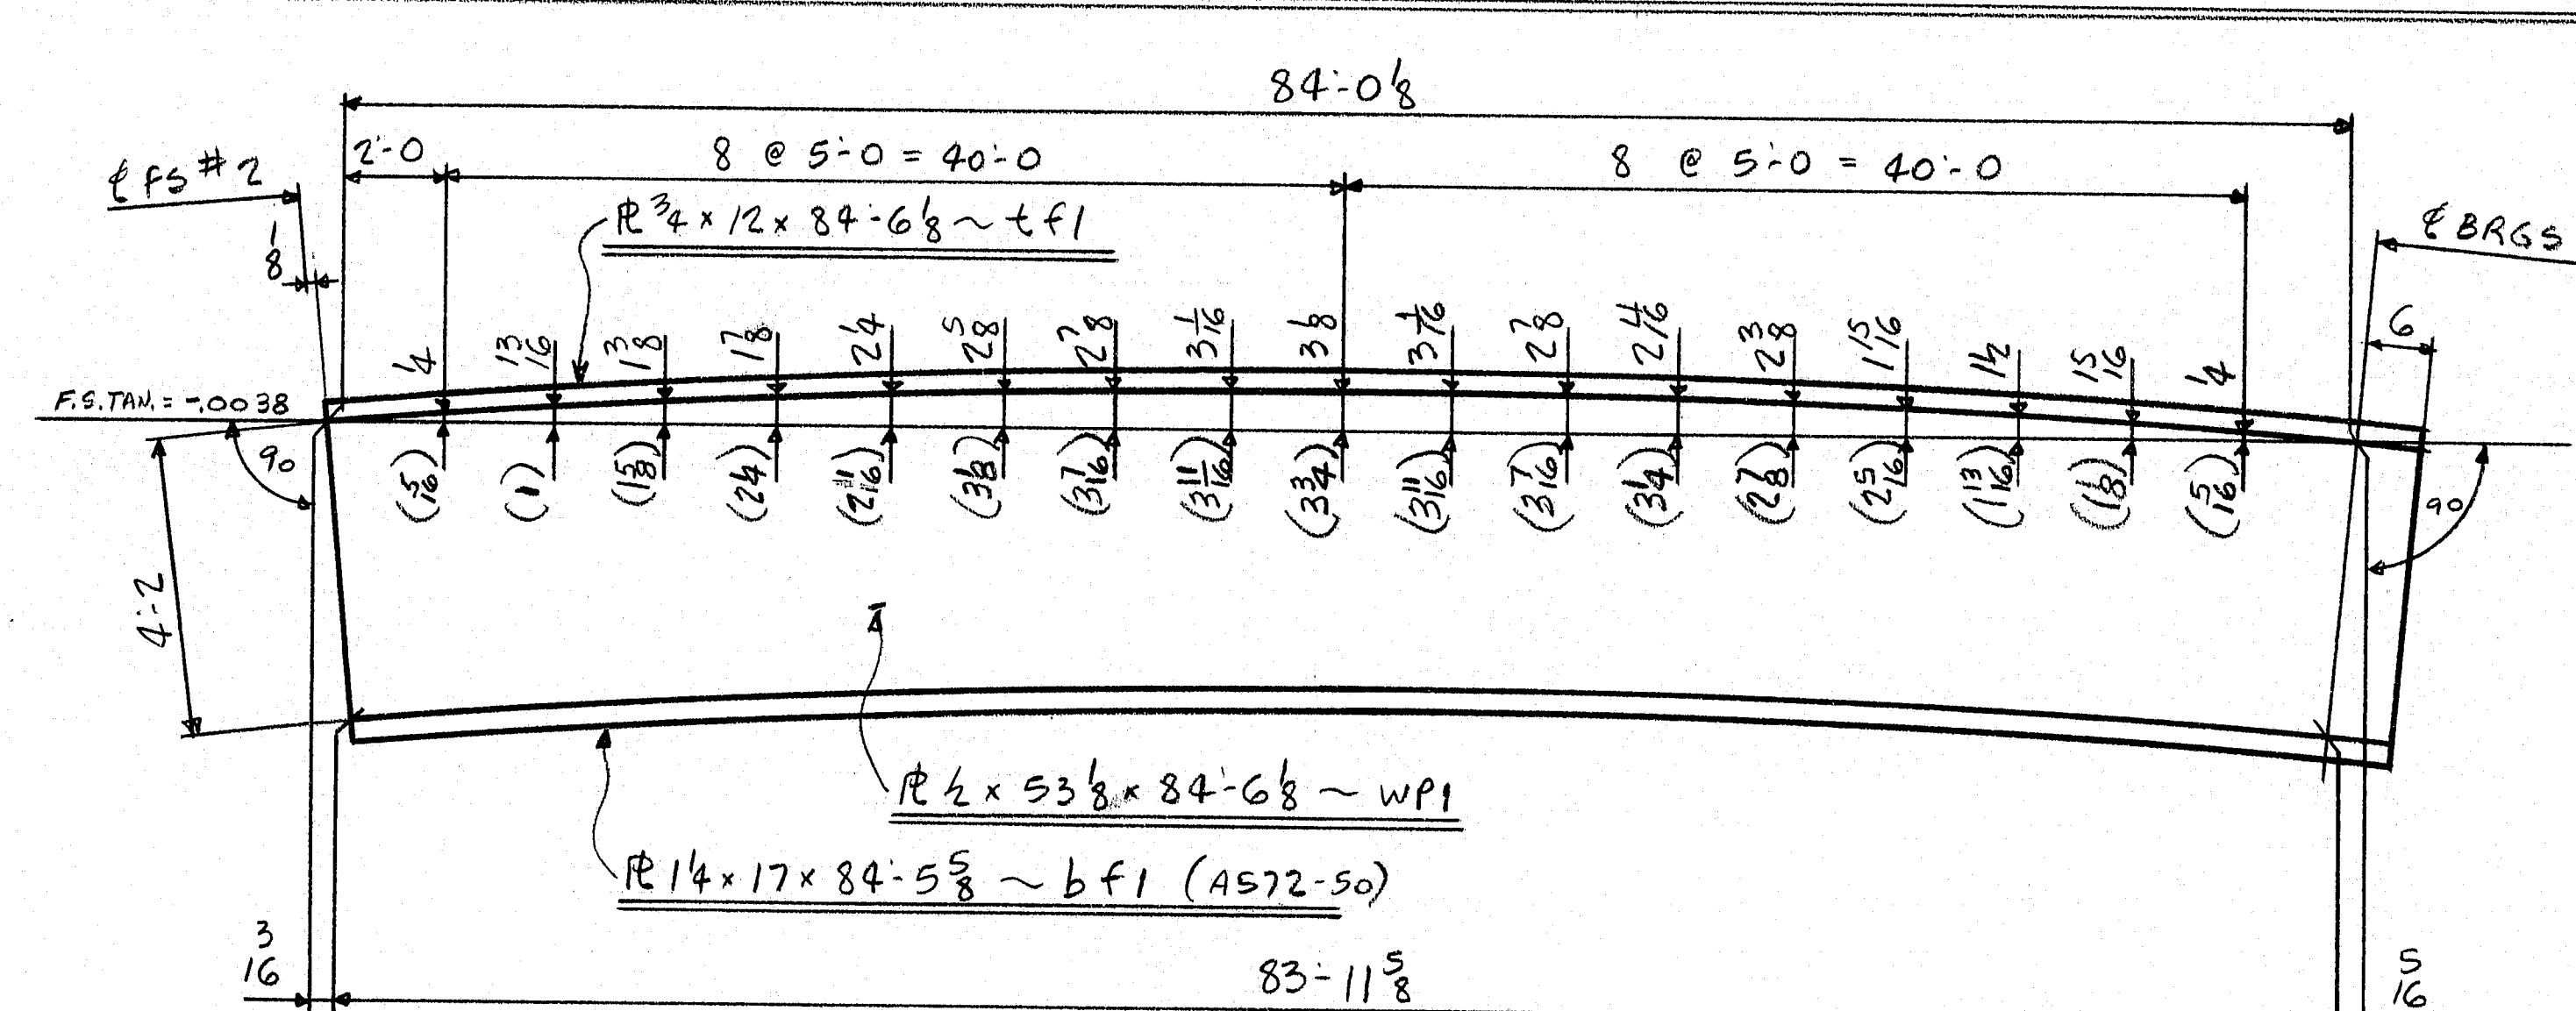 84'-0 1/8
℄ FS #2
2'-0
8 @ 5'-0 = 40'-0
8 @ 5'-0 = 40'-0
℄ BRGS
1/8
℞ 3/4 x 12 x 84'-6 1/8 ~ tf1
6
1/4 13/16 1 3/8 1 7/8 2 1/4 2 5/8 2 7/8 3 1/16 3 1/8 3 1/16 2 7/8 2 3/8 1 15/16 1 1/2 15/16 1/4
F.S.TAN. = -.0038
90
(5/16) (1) (1 5/8) (2 1/4) (2 11/16) (3 1/8) (3 7/16) (3 11/16) (3 3/4) (3 11/16) (3 7/16) (3 1/4) (2 7/8) (2 5/16) (1 13/16) (1 1/8) (5/16)
90
4'-2
℞ 1/2 x 53 1/8 x 84'-6 1/8 ~ WP1
℞ 1 1/4 x 17 x 84'-5 5/8 ~ bf1 (A572-50)
3/16
83'-11 5/8
5/16